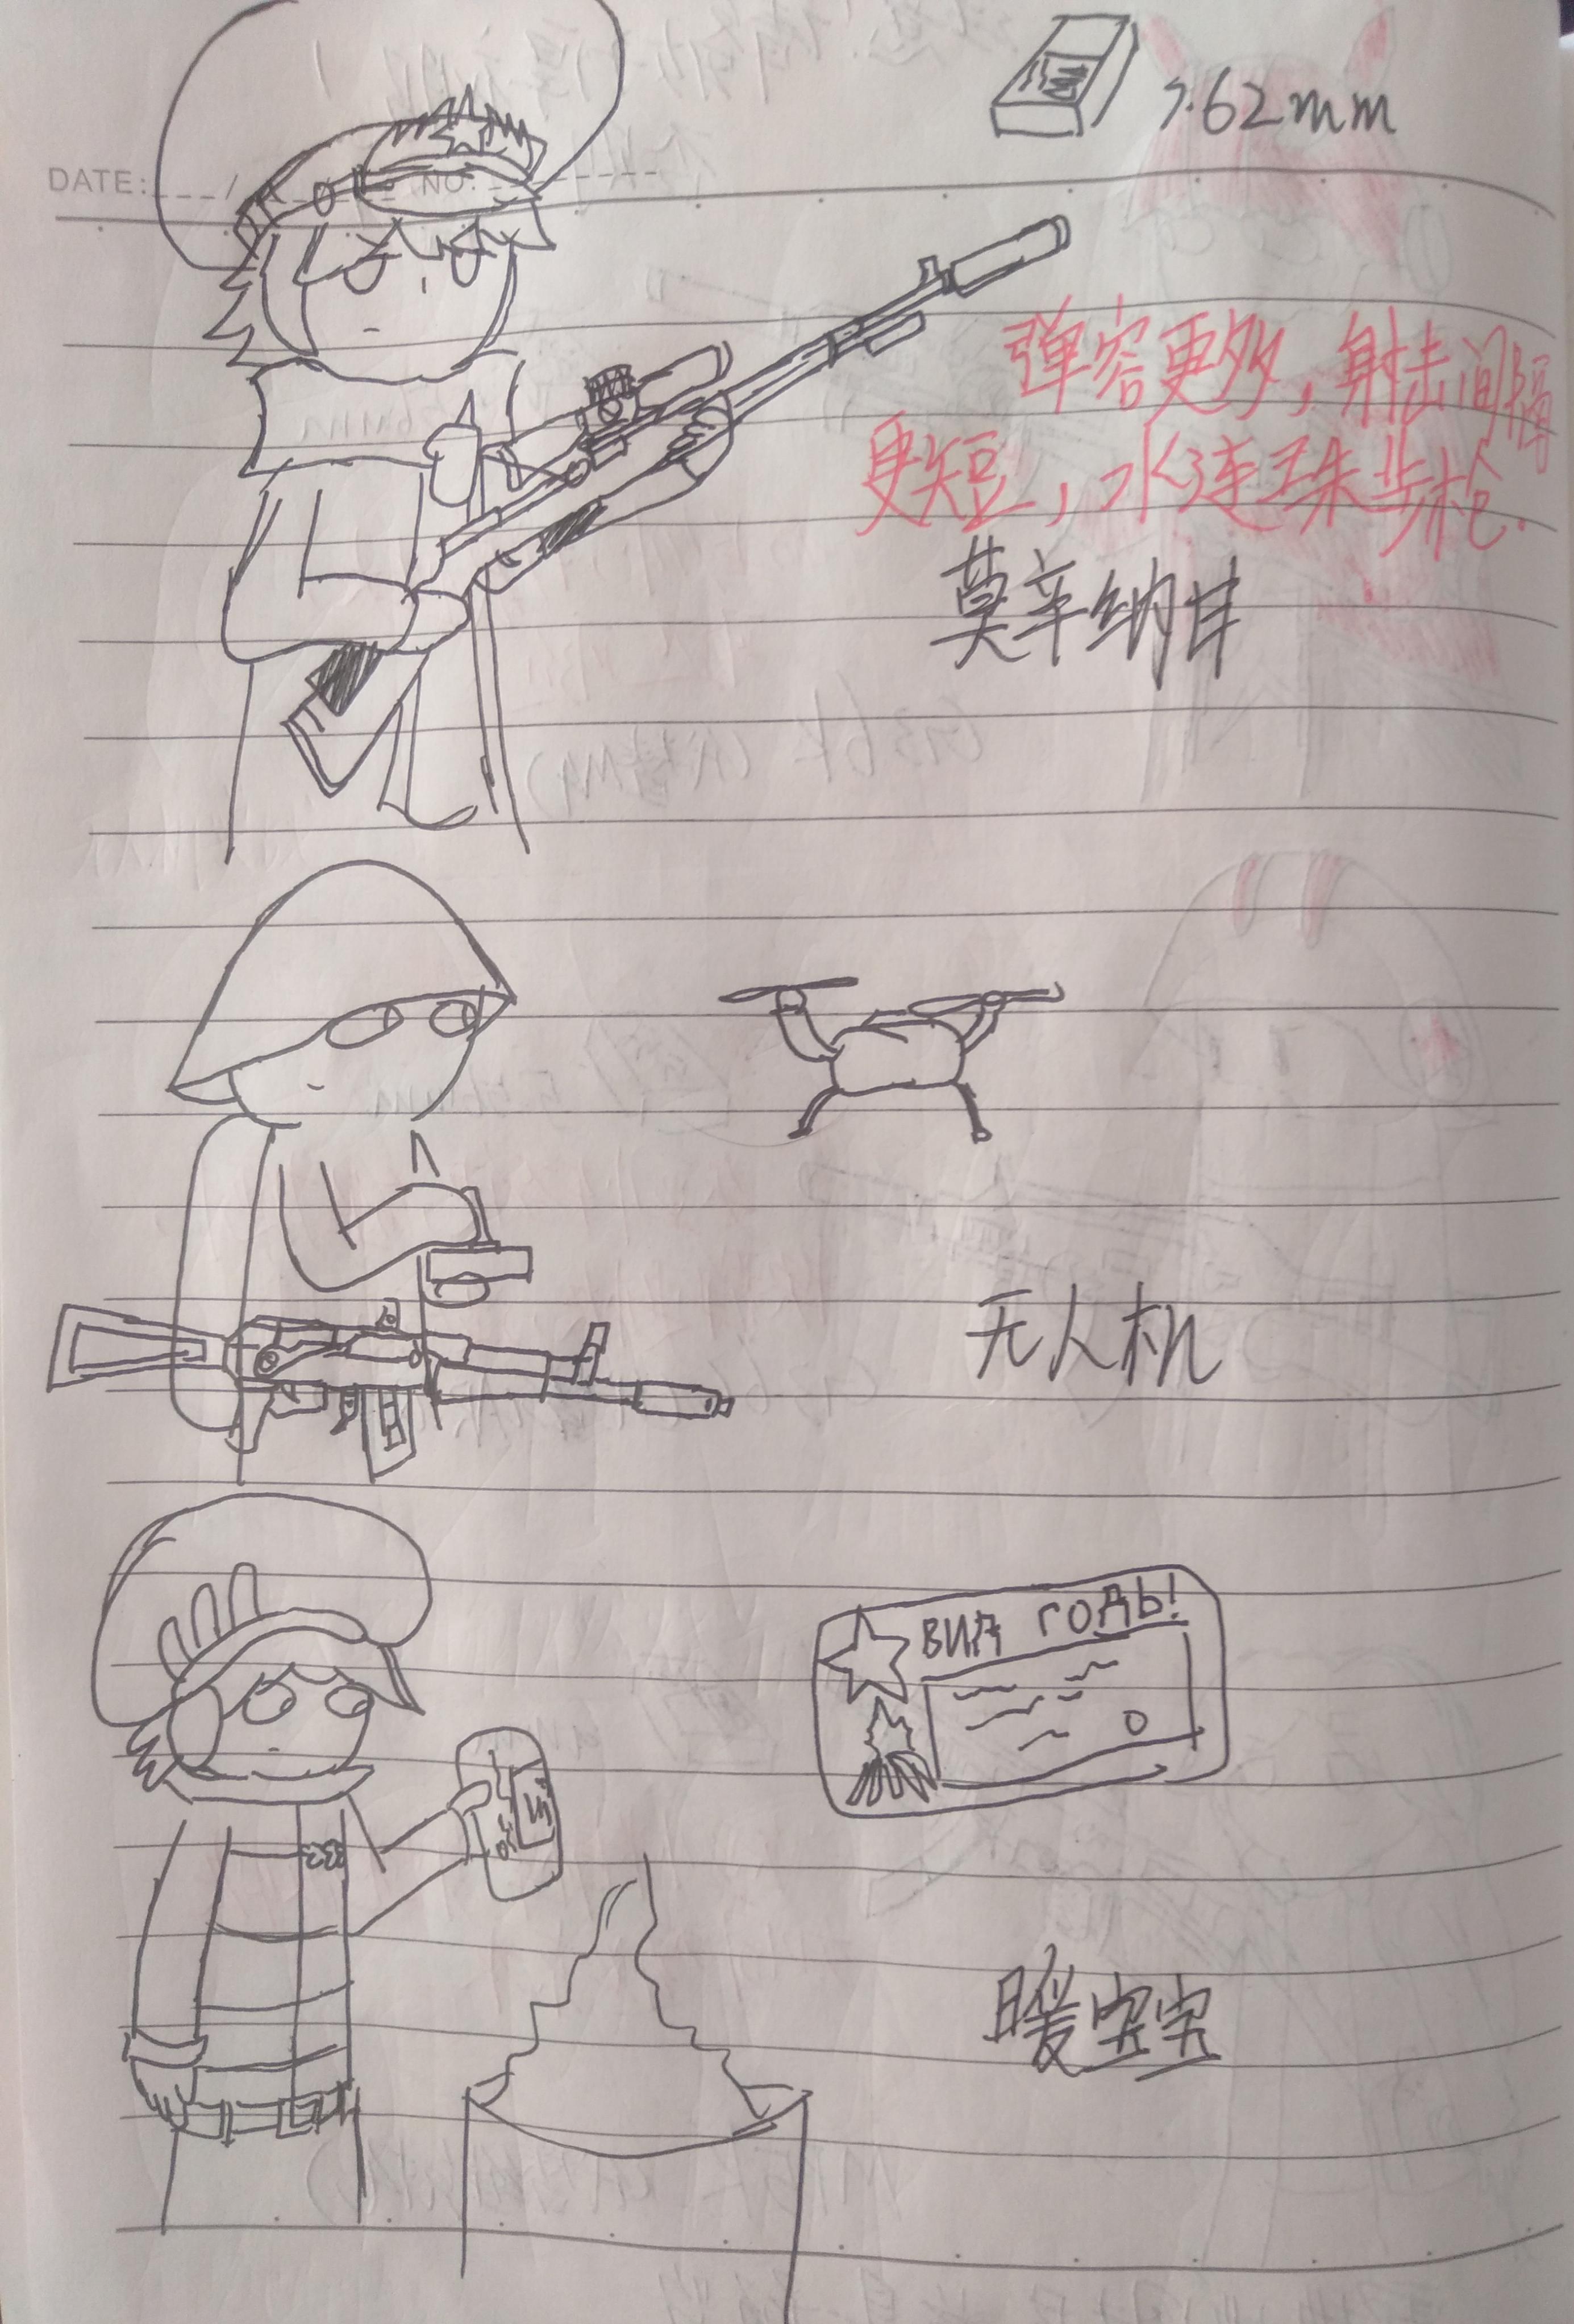 7.62mm
DATE: / NO:
弹容更多，射击间隔
更短，水连珠步枪.
莫辛纳甘
无人机
ВИД ГОДЬ!
暖宝宝